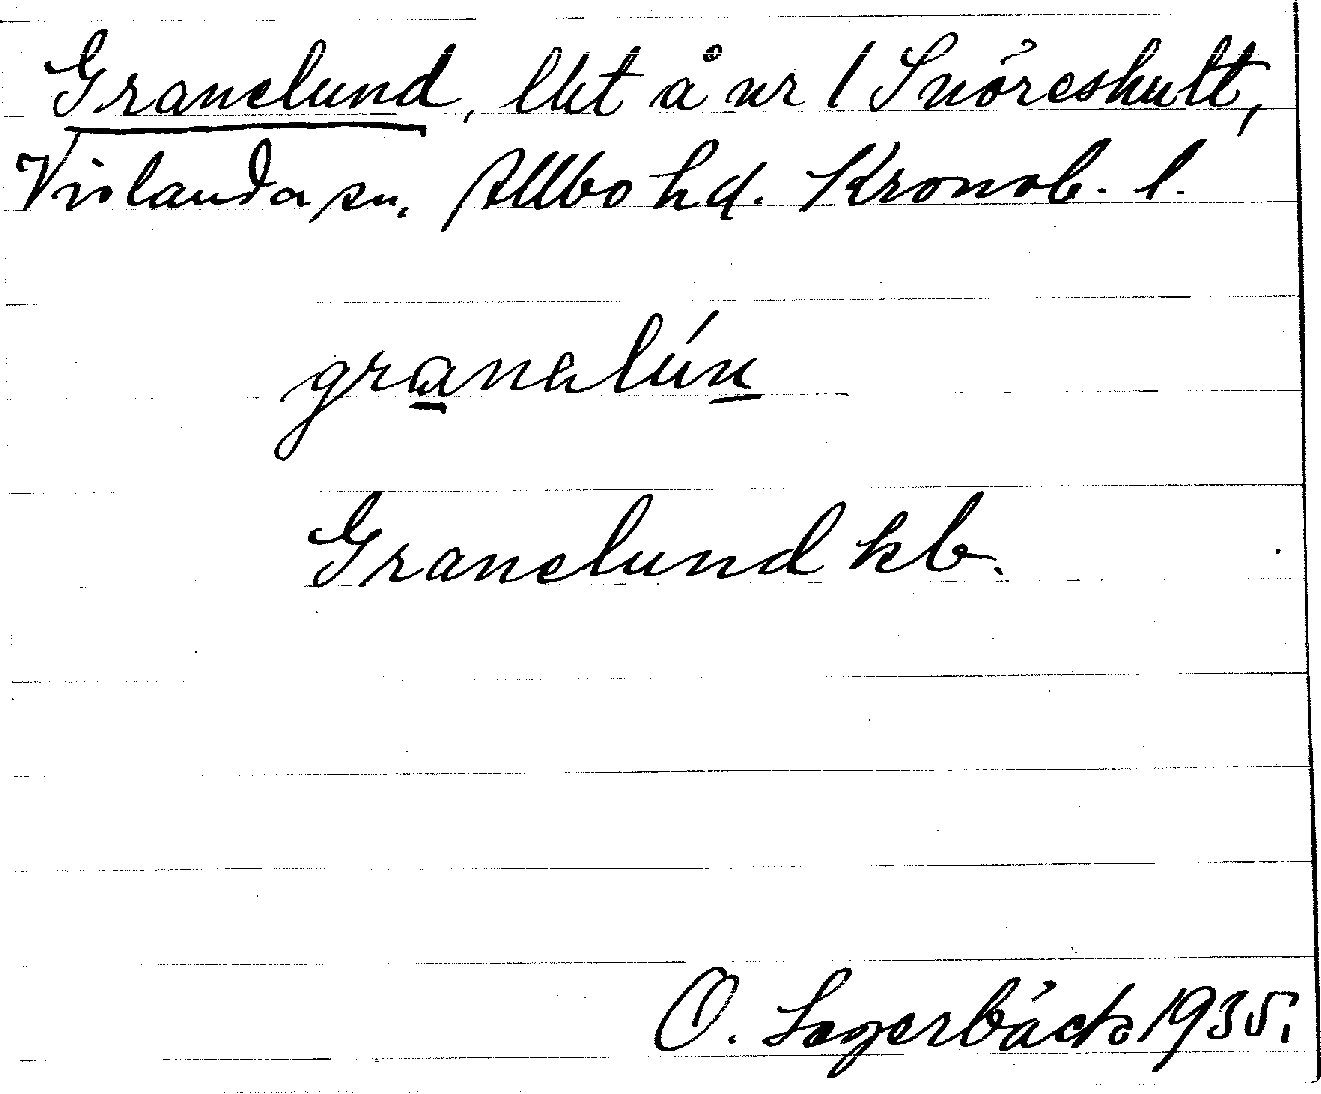 Granelund, lht å nr 1 Snöreshult,
Vislanda sn, Allbo hd. Kronob. l.
granalún
Granelund kb.
O. Lagerbäck 1935.